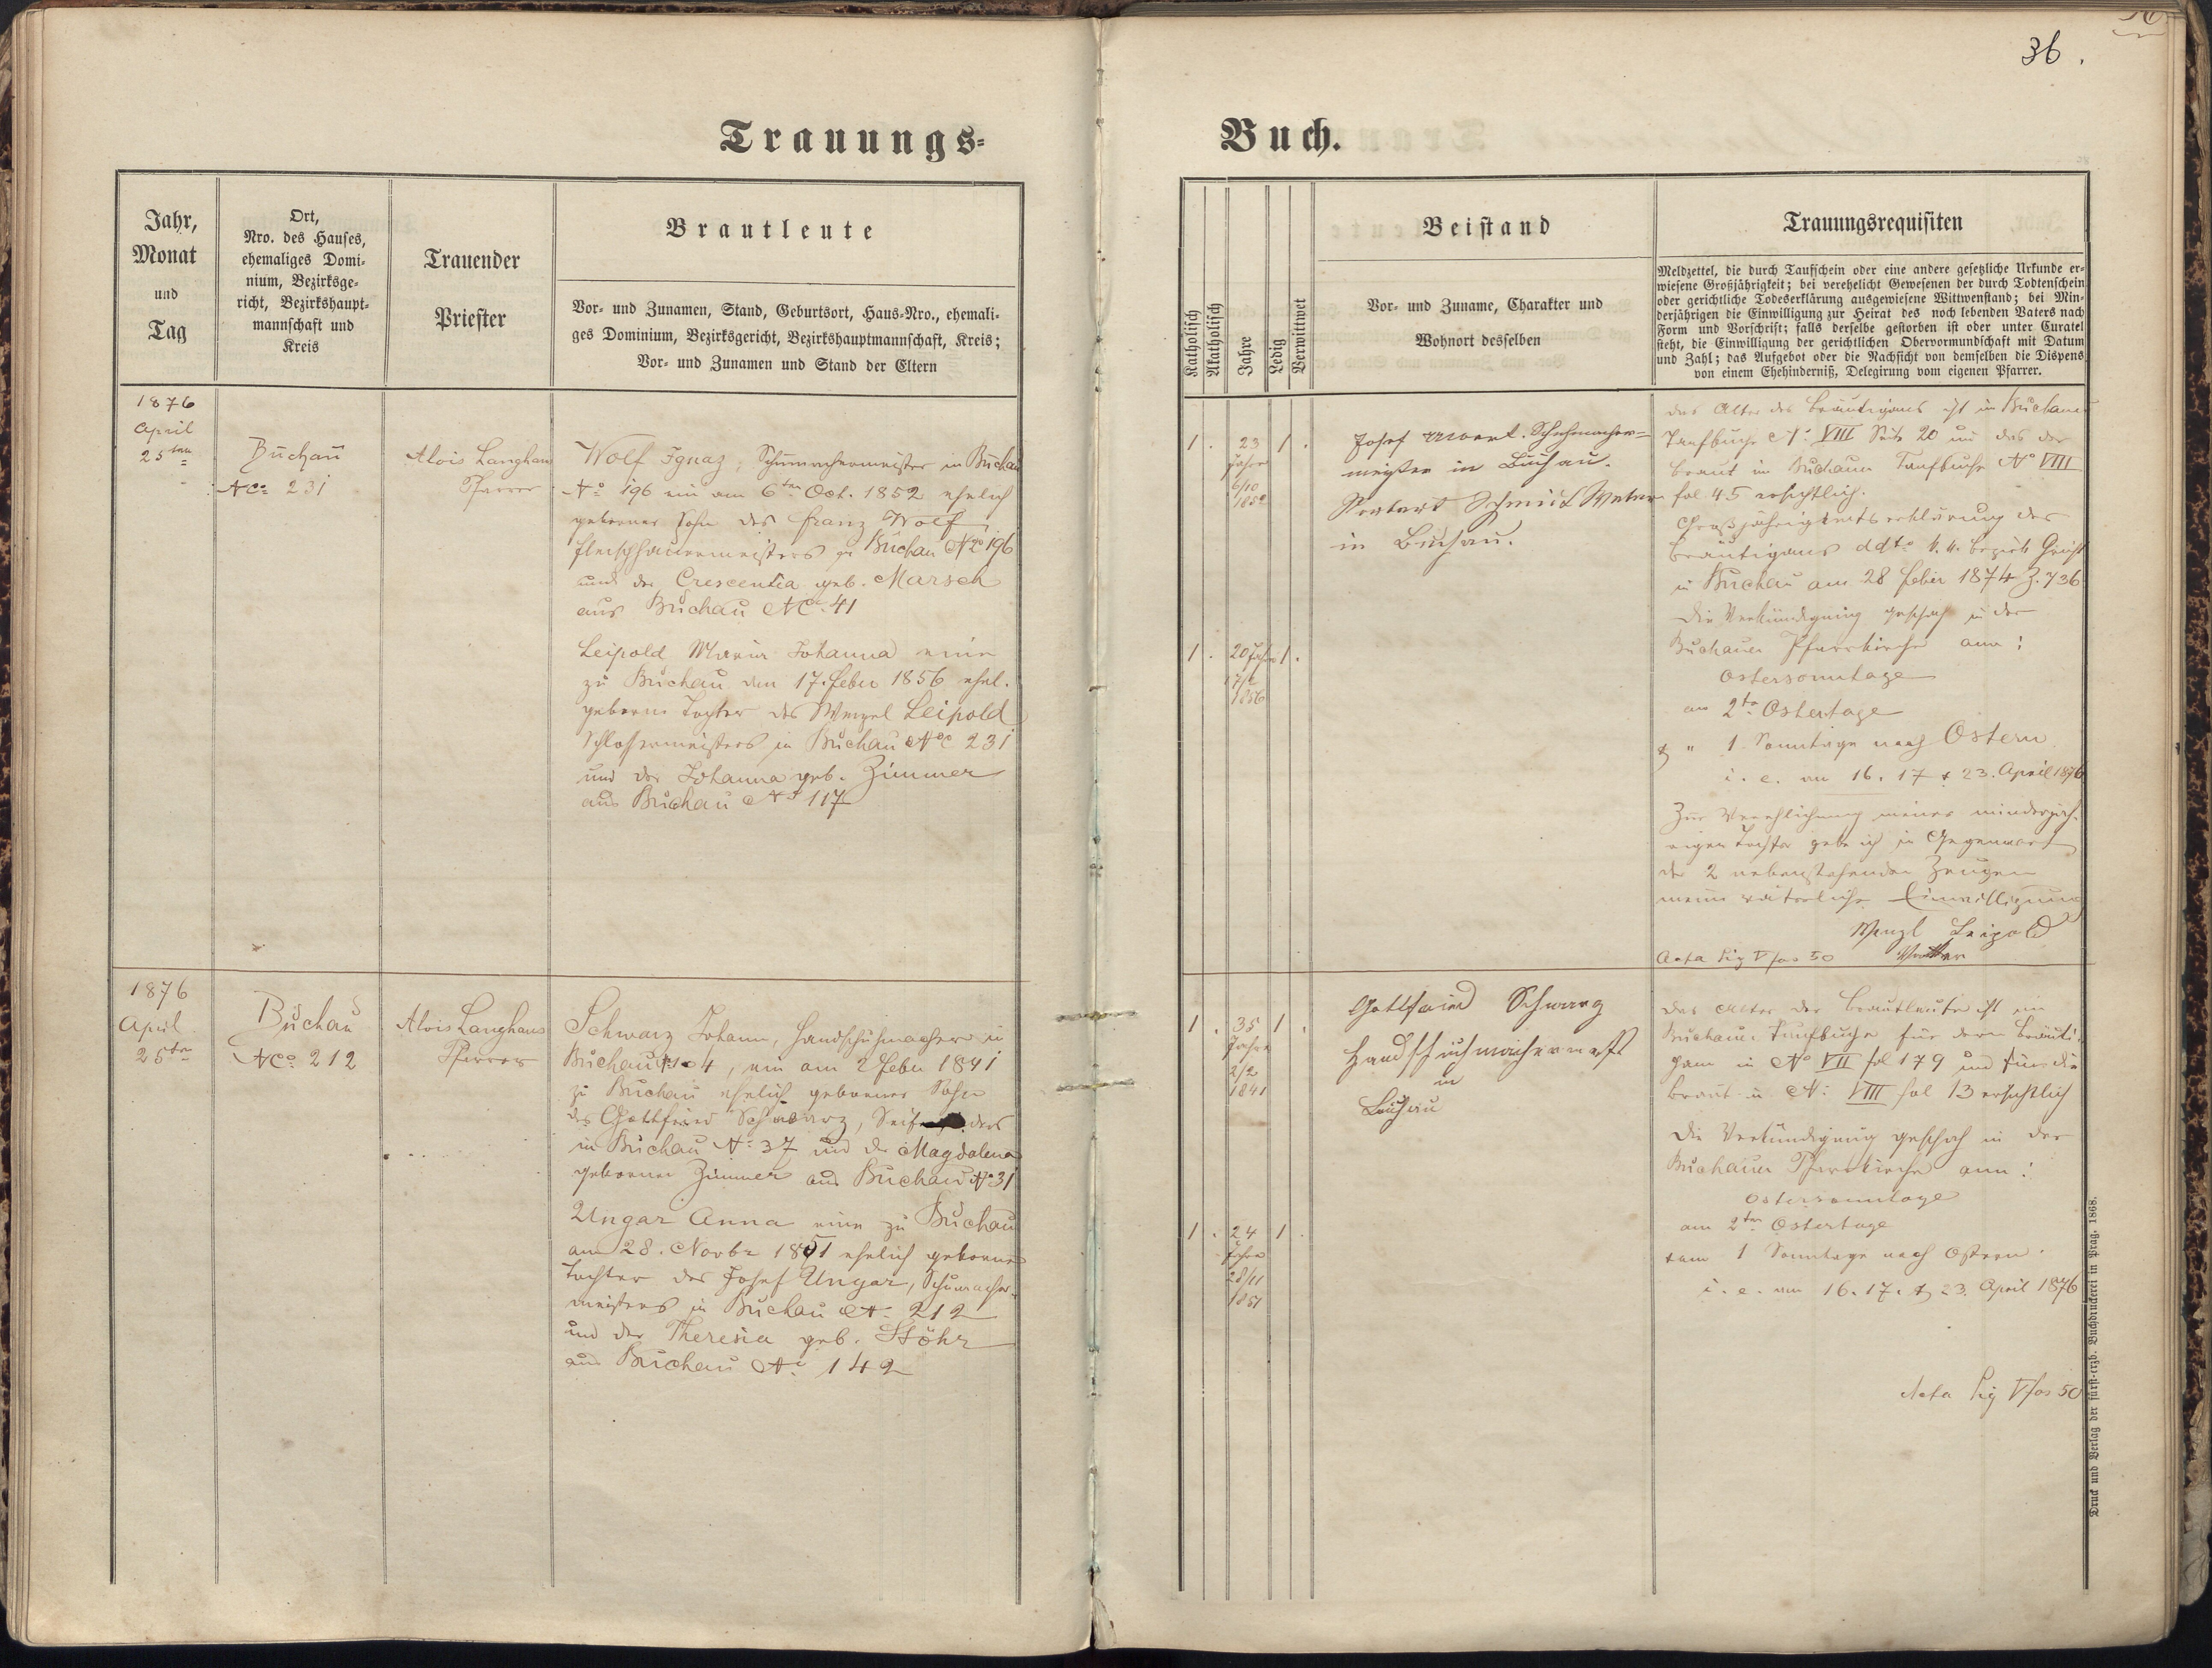 36.
Trauungs-
Buch.
Jahr,
Monat
und
Tag
Ort,
Nro. des Hauses,
ehemaliges Domi-
nium, Bezirksge-
richt, Bezirkshaupt-
mannschaft und
Kreis
Trauender
Priester
Brautleute
Vor- und Zunamen, Stand, Geburtsort, Haus-Nro., ehemali-
ges Dominium, Bezirksgericht, Bezirkshauptmannschaft, Kreis;
Vor- und Zunamen und Stand der Eltern
Katholisch
Akatholisch
Jahre
Ledig
Verwittwet
Beistand
Vor- und Zuname, Charakter und
Wohnort desselben
Trauungsrequisiten
Meldzettel, die durch Taufschein oder eine andere gesetzliche Urkunde er-
wiesene Großjährigkeit; bei verehelicht Gewesenen der durch Todtenschein
oder gerichtliche Todeserklärung ausgewiesene Wittwenstand; bei Min-
derjährigen die Einwilligung zur Heirat des noch lebenden Vaters nach
Form und Vorschrift; falls derselbe gestorben ist oder unter Curatel
steht, die Einwilligung der gerichtlichen Obervormundschaft mit Datum
und Zahl; das Aufgebot oder die Nachsicht von demselben die Dispens
von einem Ehehinderniß, Delegirung vom eigenen Pfarrer.
1876
April
25ten
Buchau
NC: 231
Alois Langhans
Pfarrer
Wolf Ignaz, Schumachermeister in Buchau
No 196 ein am 6ten Oct. 1852 ehelich
geborener Sohn des Franz Wolf
Fleischhauermeisters in Buchau No 196
und der Crescentia geb. Marsch
aus Buchau NC. 41
Leipold Maria Johanna eine
zu Buchau den 17. Feber 1856 ehel.
geborne Tochter des Wenzel Leipold
Schlossermeisters in Buchau NC 231
und der Johanna geb. Zimmer
aus Buchau No 117
1 . 23 1 .
Jahre
6/10
1852
1 . 20 Jahre 1 .
17/2
1856
Josef Schuhmacher-
meister in Buchau.
Schmidt
in Buchau.
das Alter des Bräutigams ist im Buchauer
Taufbuche No: VIII Seite 20 und das der
Braut im Buchauer Taufbuche No VIII
fol 45 ersichtlich.
Großjährigkeitserklärung des
Bräutigams ddto k. k. Bezirks Gericht
in Buchau am 28 Feber 1874 Z. 736
Die Verkündigung geschah in der
Buchauer Pfarrkirche am:
Ostersonntage
am 2ten Ostertage
& " 1 Sonntage nach Ostern
i. e. am 16. 17 & 23. April 1876
Zur Verehlichung meiner minderjäh-
rigen Tochter gebe ich in Gegenwart
der 2 nebenstehenden Zeugen
meine väterliche Einwilligung
Wenzl Leipold
Vatter
Acta Sig V fas 50
1876
April
25ten
Buchau
NC: 212
Alois Langhans
Pfarrer
Schwarz Johann, Handschuhmacher in
Buchau No 4, ein am 2 Feber 1841
zu Buchau ehelich geborener Sohn
des Gottfried Schwarz, Seifensieders
in Buchau No: 37 und der Magdalena
geborene Zimmer aus Buchau No 31
Ungar Anna eine zu Buchau
am 28. Novbr 1851 ehelich geborene
Tochter des Josef Ungar, Schumacher-
meisters in Buchau No: 212
und der Theresia geb. Stöhr
aus Buchau No: 142
1 . 35 1 .
Jahre
2/2
1841
1 . 24 1 .
Jahre
28/11
1851
Gottfried Schwarz
Handschuhmachermeist.
in
Buchau
das Alter der Brautleute ist im
Buchauer Taufbuche für den Bräuti-
gam in No VII fol 179 und für die
Braut in No: VIII fol 13 ersichtlich
Die Verkündigung geschah in der
Buchauer Pfarrkirche am:
Ostersonntage
am 2ten Ostertage
& am 1 Sonntage nach Ostern.
i. e. am 16. 17. & 23. April 1876
Acta Sig V fas 50
Druck und Verlag der fürst-erzb. Buchdruckerei in Prag. 1868.